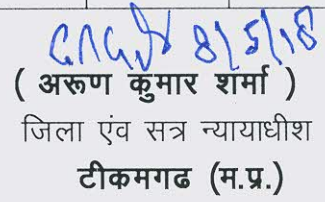 8/5/18
( अरूण कुमार शर्मा )
जिला एंव सत्र न्यायाधीश
टीकमगढ (म.प्र.)